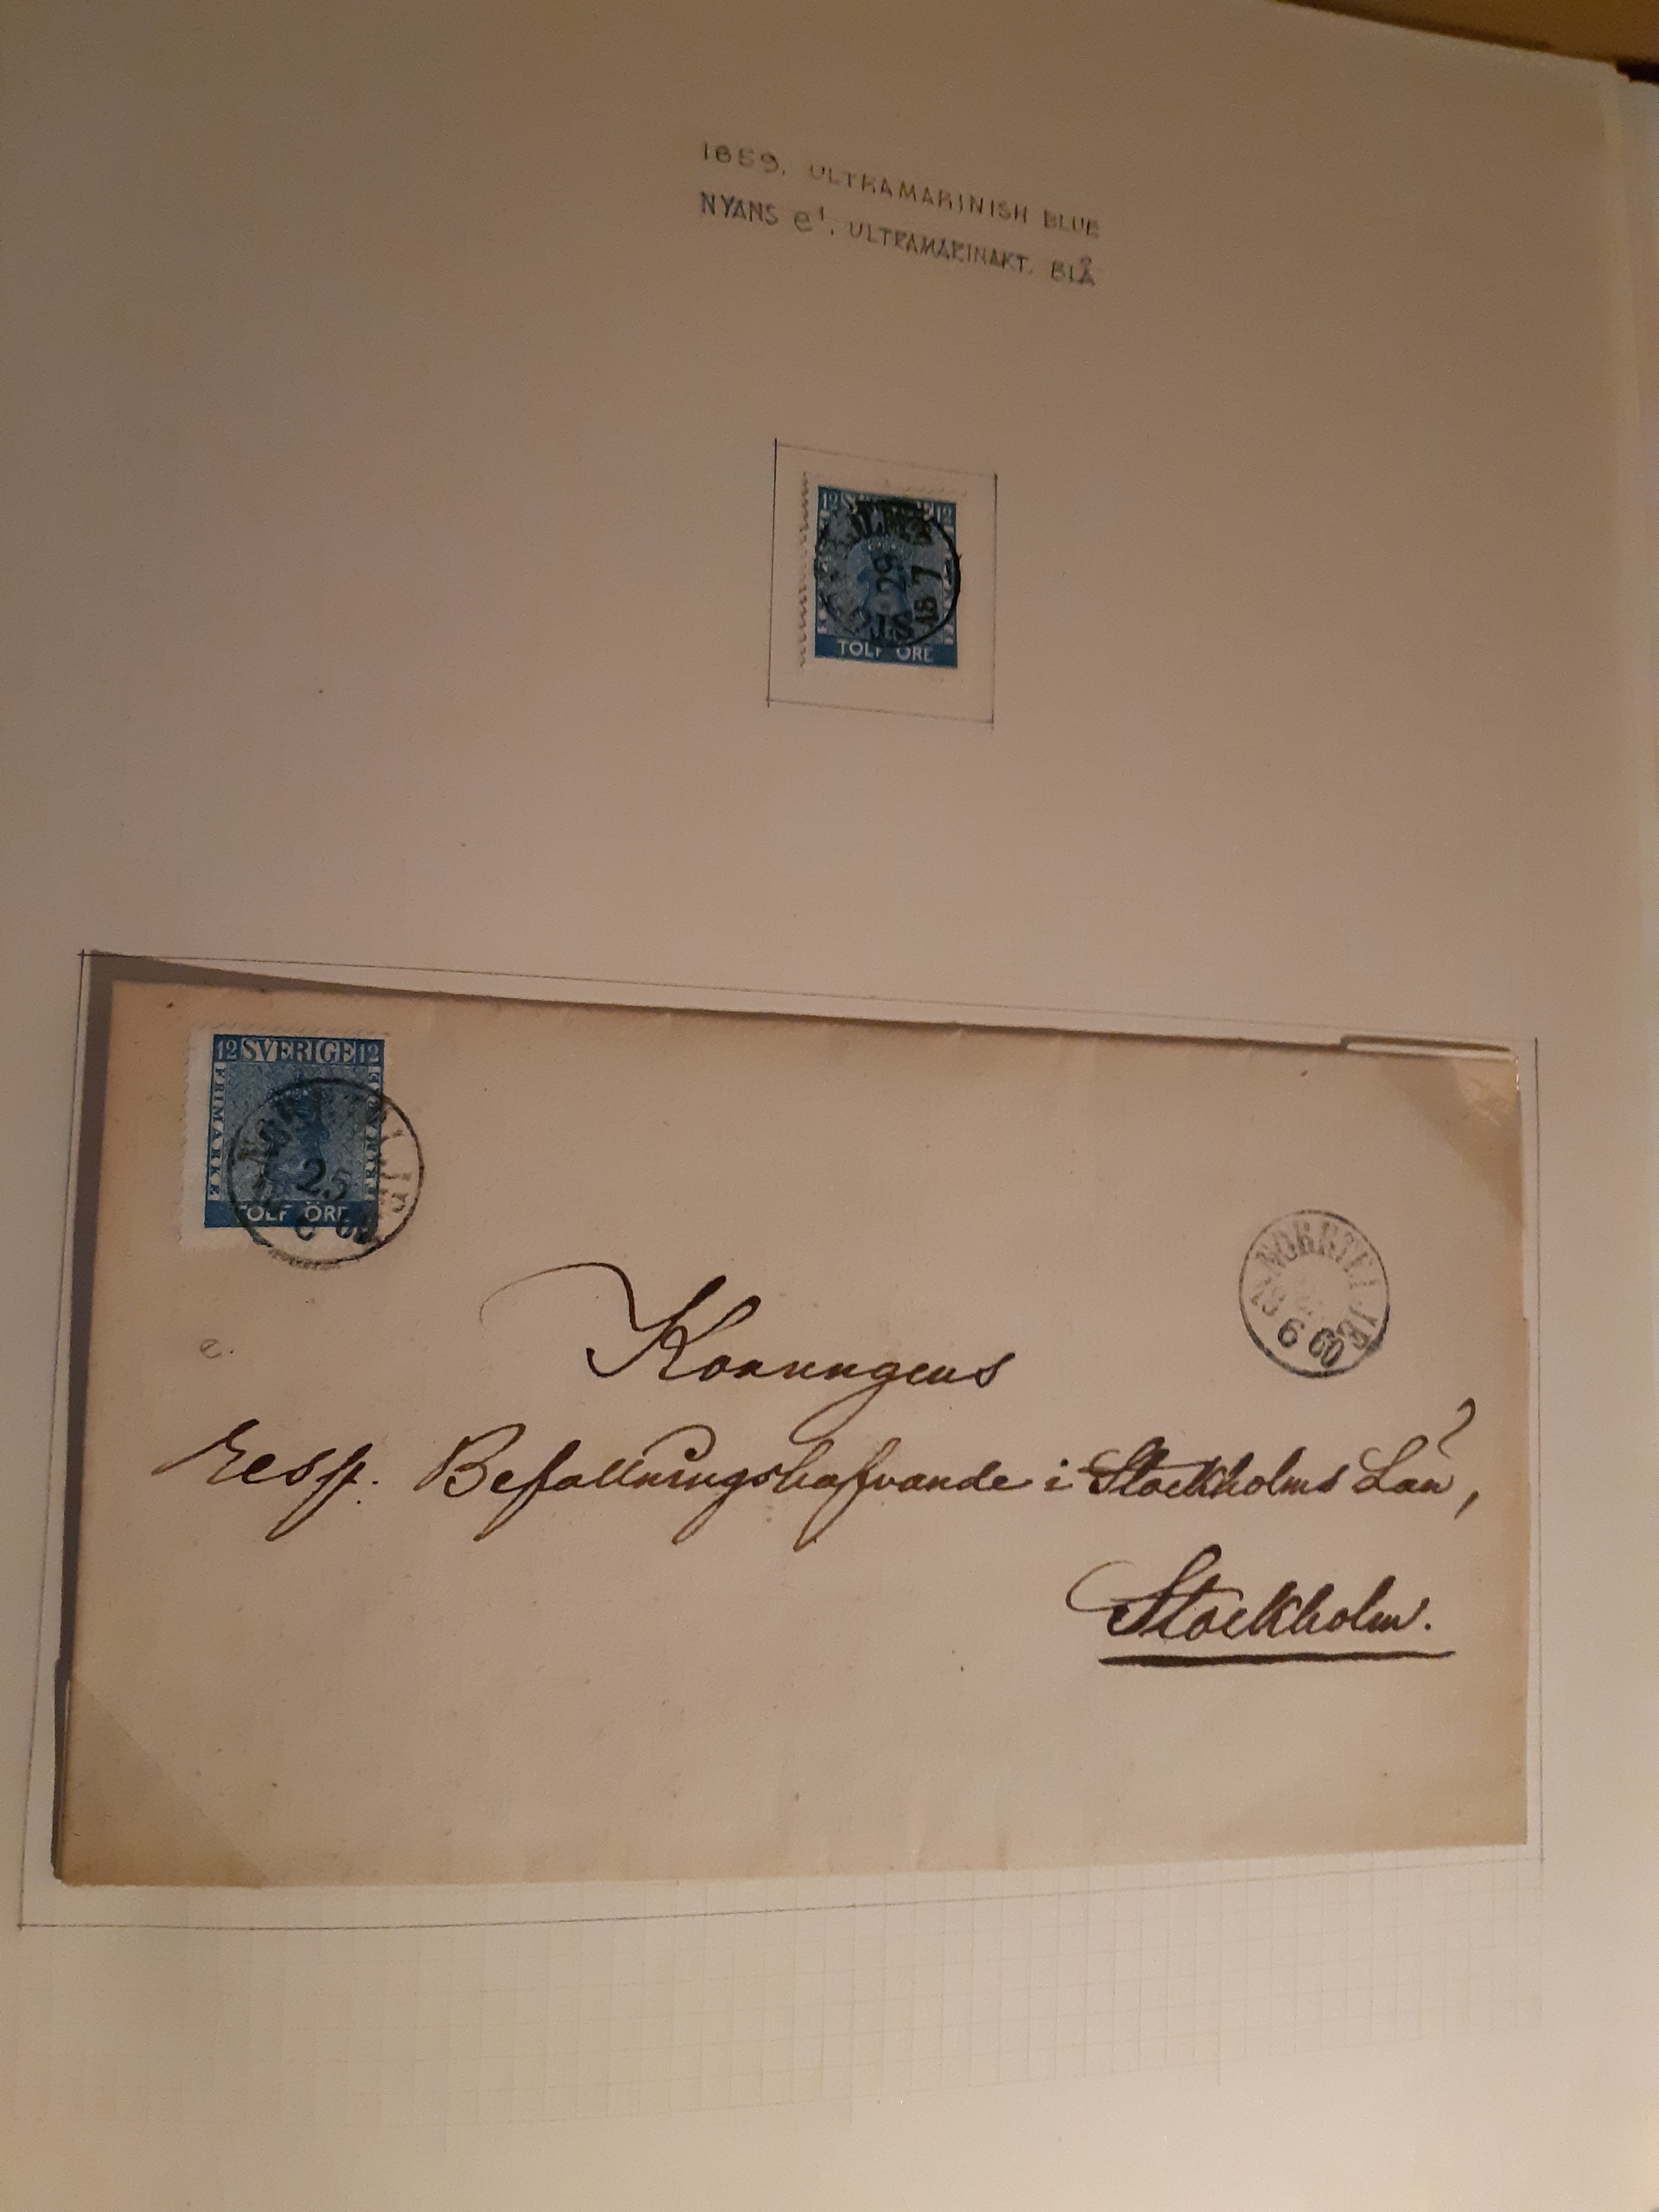 1859. ULTRAMARINISH BLUE
NYANS e¹. ULTRAMARINAKT. BLÅ
12 SVERIGE 12
29
18 7
TOLF ÖRE
12 SVERIGE 12
FRIMÄRKE
25
6 60
TOLF ÖRE
NORRTELJE
6 60
e.
Konungens
Resp. Befallningshafvande i Stockholms Län,
Stockholm.